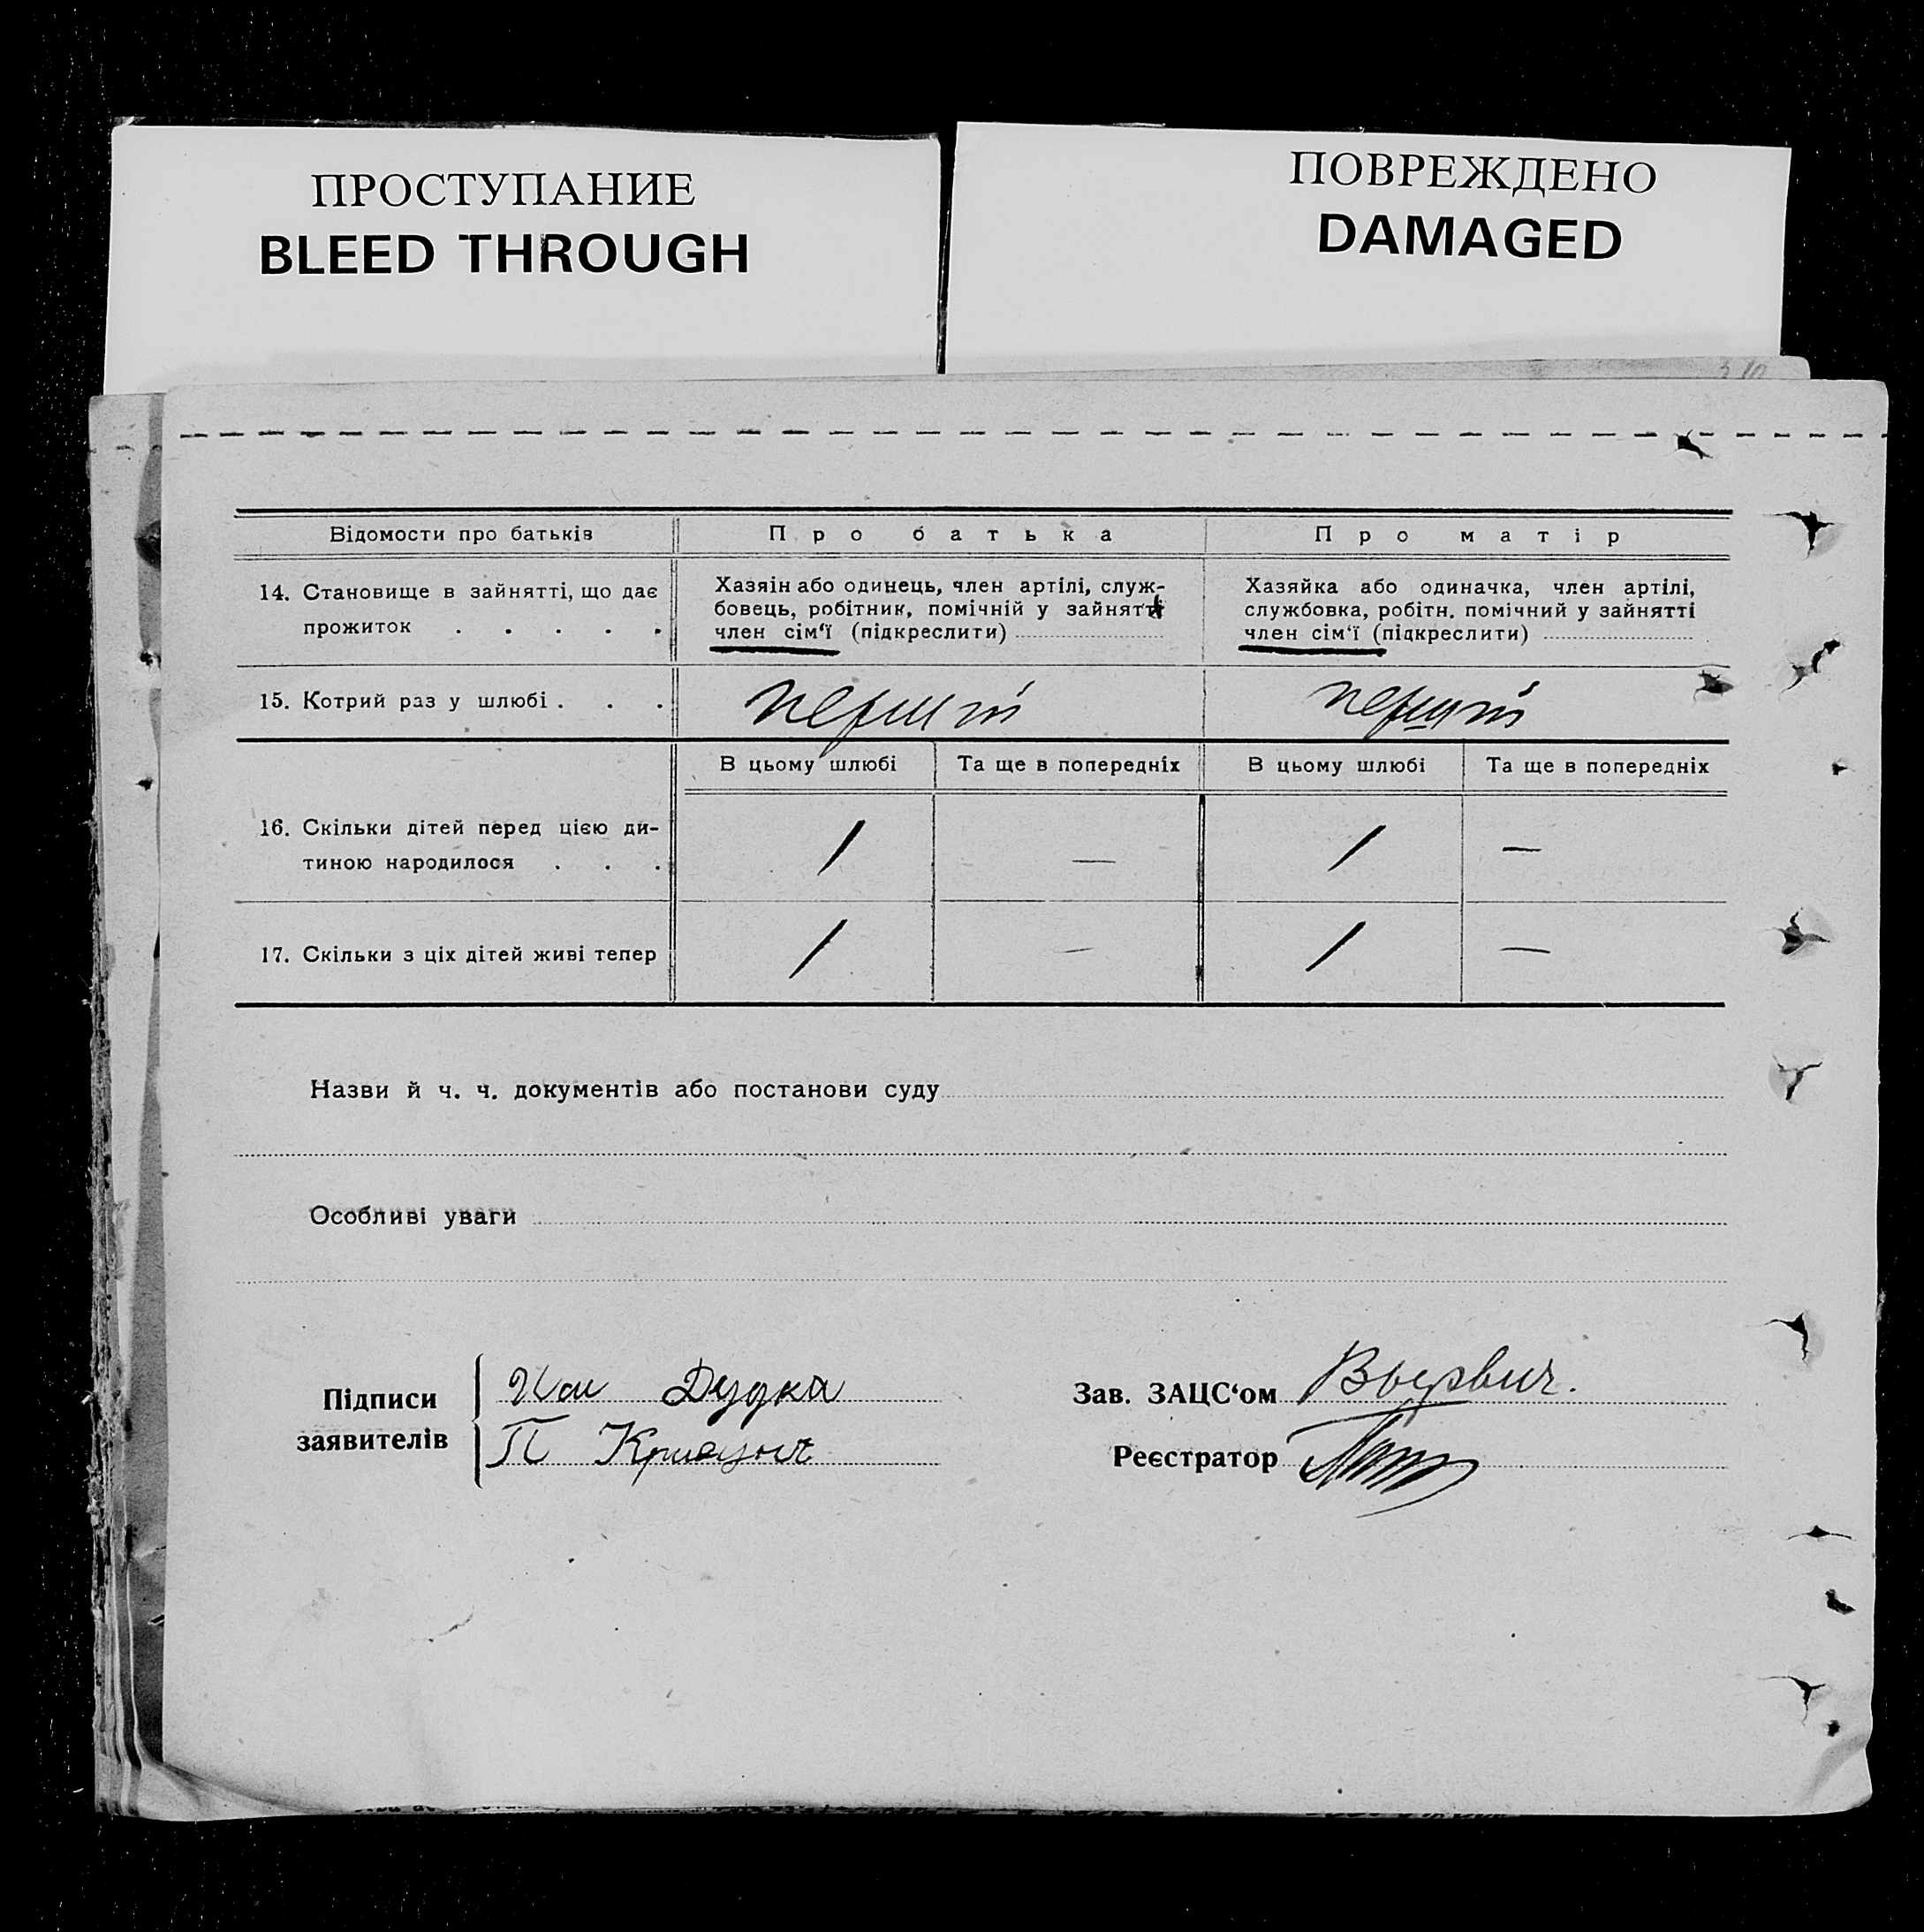 ПРОСТУПАНИЕ
BLEED THROUGH
ПОВРЕЖДЕНО
DAMAGED
Відомости про батьків
Про батька
Про матір
14. Становище в зайнятті, що дає
прожиток . . . . .
Хазяін або одинець, член артілі, служ-
бовець, робітник, помічній у зайнятті
член сім‘ї (підкреслити)
Хазяйка або одиначка, член артілі,
службовка, робітн. помічний у зайнятті
член сім‘ї (підкреслити)
15. Котрий раз у шлюбі . . .
перший
перший
В цьому шлюбі
Та ще в попередніх
В цьому шлюбі
Та ще в попередніх
16. Скільки дітей перед цією ди-
тиною народилося . . .
/
—
/
—
17. Скільки з ціх дітей живі тепер
/
—
/
—
Назви й ч. ч. документів або постанови суду
Особливі уваги
Підписи
заявителів
Дудка
П
Зав. ЗАЦС‘ом
Реєстратор